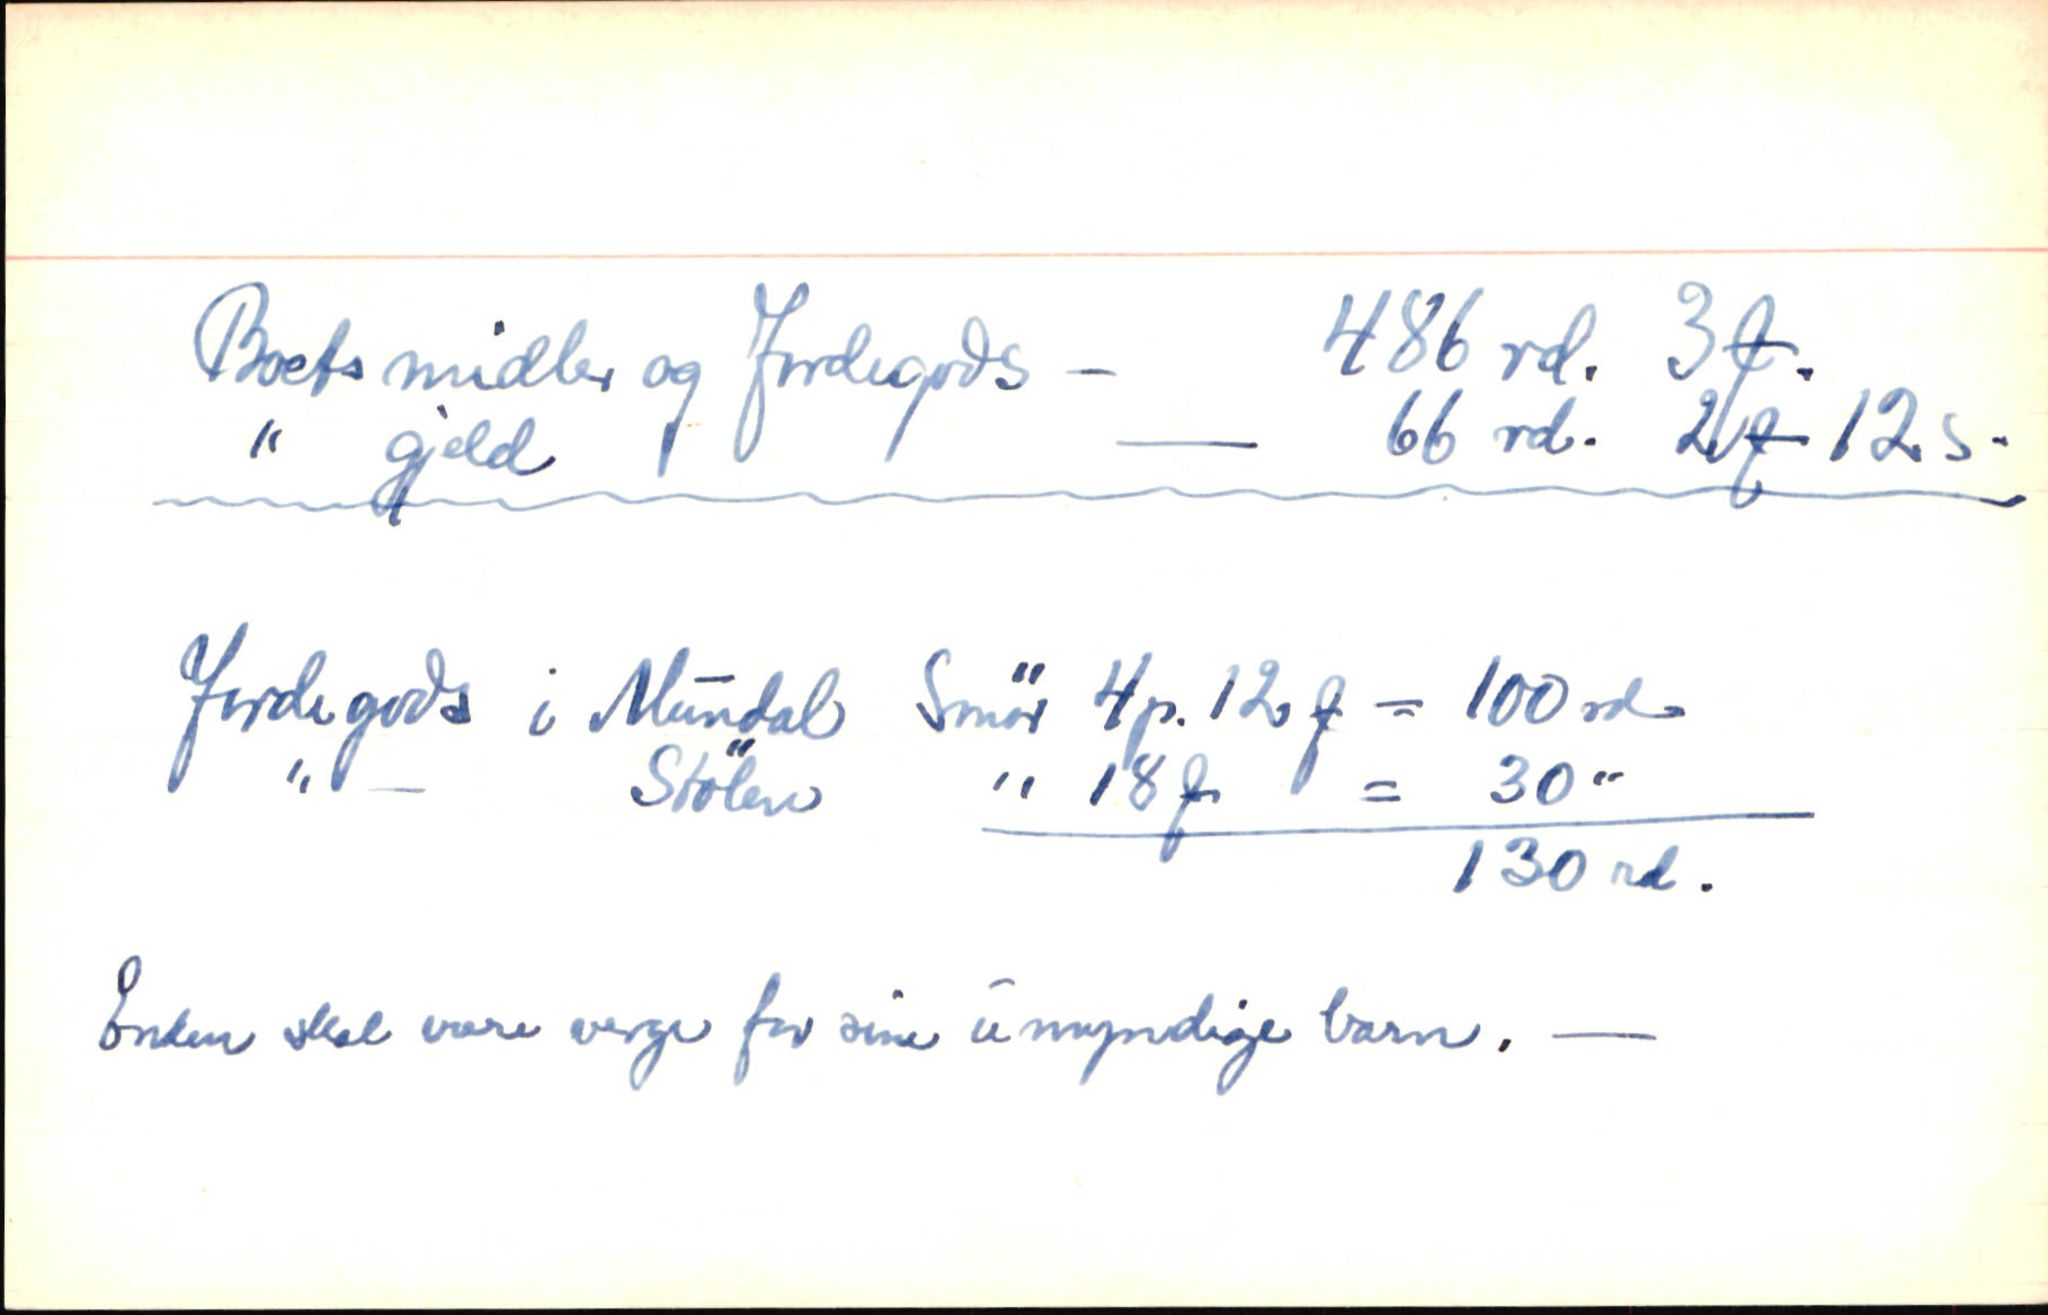 Boets midler og Jordegods - 486 rd. 3 f.
" gjeld — 66 rd. 2 f 12 s.
Jordegods i Mundal Smör 4 p. 12 f = 100 rd.
" - Stölen " 18 f = 30 "
130 rd.
Enken skal være verge for sine umyndige barn. —